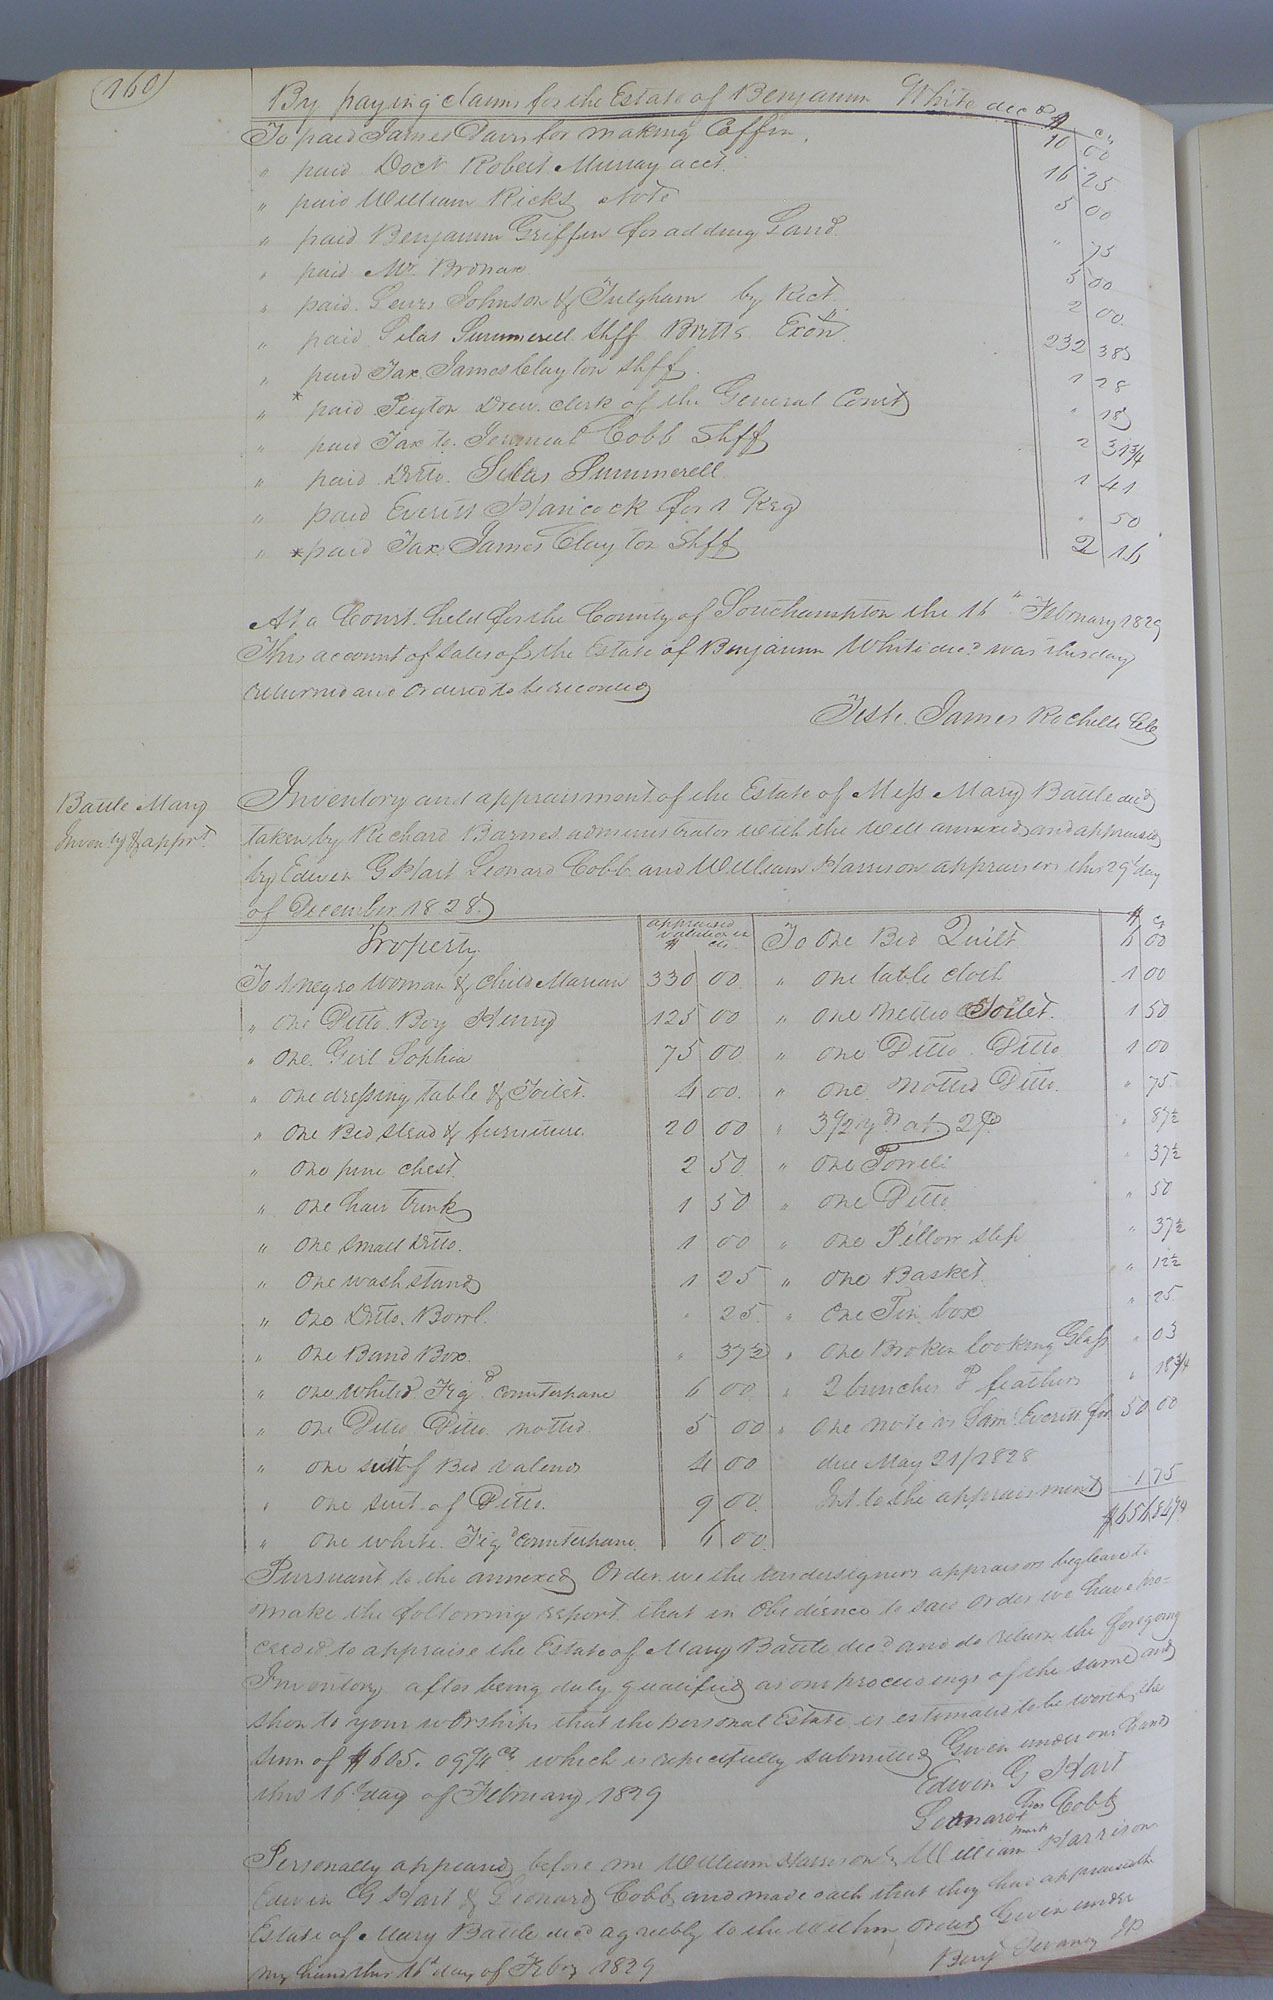 160
By paying claims for the Estate of Benjamin White decd $ cts
To paid James Davis for making Coffin. 10 00
" paid Doct Robert Murray acct. 16 25
" paid William Ricks Note 5 00
" paid Benjamin Griffin for adding Land " 75
" paid Mr. Bronax 5 00
" paid Lewis Johnson & Fulgham by Rect. 2 00
" paid Silas Summerell Shff Britts Exon 232 38
" paid Tax James Clayton Shff. 1 28
" * paid Peyton Drew. clerk of the General Court " 18
" paid Tax to. Jeremiah Cobb Shff 2 31 3/4
" paid Ditto. Silas Summerell 1 41
" paid Everitt Hancock for 1 Keg " 50
" * paid Tax James Clayton Shff 2 16
At a Court held for the County of Southampton the 16th February 1829
This account of Sales of the Estate of Benjamin White decd was this day
returned and ordered to be recorded
Teste. James Rochelle Clk
Battle Mary
Inventy & apprt
Inventory and appraisment of the Estate of Mess Mary Battle decd
taken by Richard Barnes administrator with the will annexed and appraised
by Edwin G Hart Leonard Cobb and William Harrison appraisers this 29th day
of December 1828
Property appraised valuation $ cts
To 1 negro woman & child Marian 330 00
" one Ditto Boy Henry 125 00
" one Girl Sophia 75 00
" one dressing table & Toilet. 4 00
" one Bed stead & furniture. 20 00
" one pine chest. 2 50
" one hair trunk 1 50
" one small Ditto. 1 00
" One wash stand 1 25
" One Ditto. Bowl. " 25
" One Band Box. " 37 1/2
" one white Figd counterpane 6 00
" one Ditto Ditto notted 5 00
" one suit of Bed valens 4 00
" one suit of Ditto. 9 00
" one white Figd counterpane. 6 00
$ cts
To One Bed Quilt 6 00
" one table cloth 1 00
" one netted Toilet. 1 50
" one Ditto Ditto 1 00
" one notted Ditto. " 75
" 3 1/2 yds at 2/ " 87 1/2
" one Towell " 37 1/2
" one Ditto " 50
" one Pillow slip " 37 1/2
" one Basket " 12 1/2
" One Tin box " 25
" One Broken looking Glass " 03
" 2 bunches of feathers " 18 3/4
" One note vs Saml Everitt for 50 00
due May 21/1828
Int to the appraisment 1 75
Pursuant to the annexed Order we the undersigners appraisors beg leave to
make the following report that in obedience to said order we have pro-
ceeded to appraise the Estate of Mary Battle decd and do return the foregoing
Inventory after being duly qualified as our proceedings of the same and
shew to your worships that the personal Estate is estimated to be worth the
sum of $605. 09 1/4 cts which is respectfully submitted Given under our hands
this 16th day of February 1829
Edwin G Hart
Leonard his mark Cobb
William Harrison
Personally appeared before me William Harrison
Edwin G Hart & Leonard Cobb and made oath that they had appraised the
Estate of Mary Battle decd agreebly to the within order Given under
my hand this 16th day of Feby 1829
Benj Devany JP